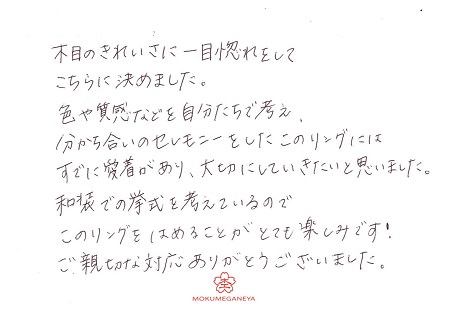 木目のきれいさに一目惚れをして
こちらに決めました。
色や質感などを自分たちで考え、
分かち合いのセレモニーをしたこのリングには
すでに愛着があり、大切にしていきたいと思いました。
和装での挙式を考えているので
このリングをはめることがとても楽しみです！
ご親切な対応ありがとうございました。
MOKUMEGANEYA